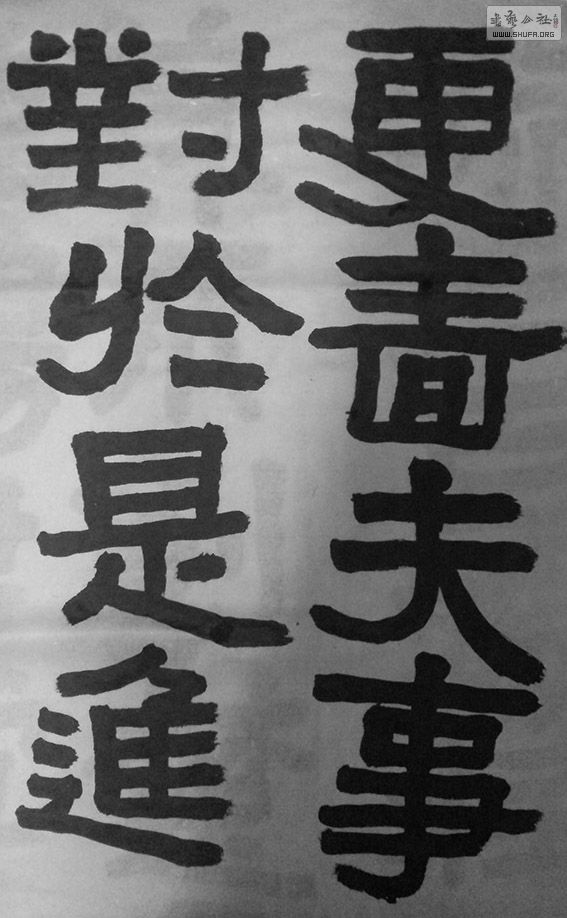 更嗇夫事
對於是進
書藝公社
WWW.SHUFA.ORG